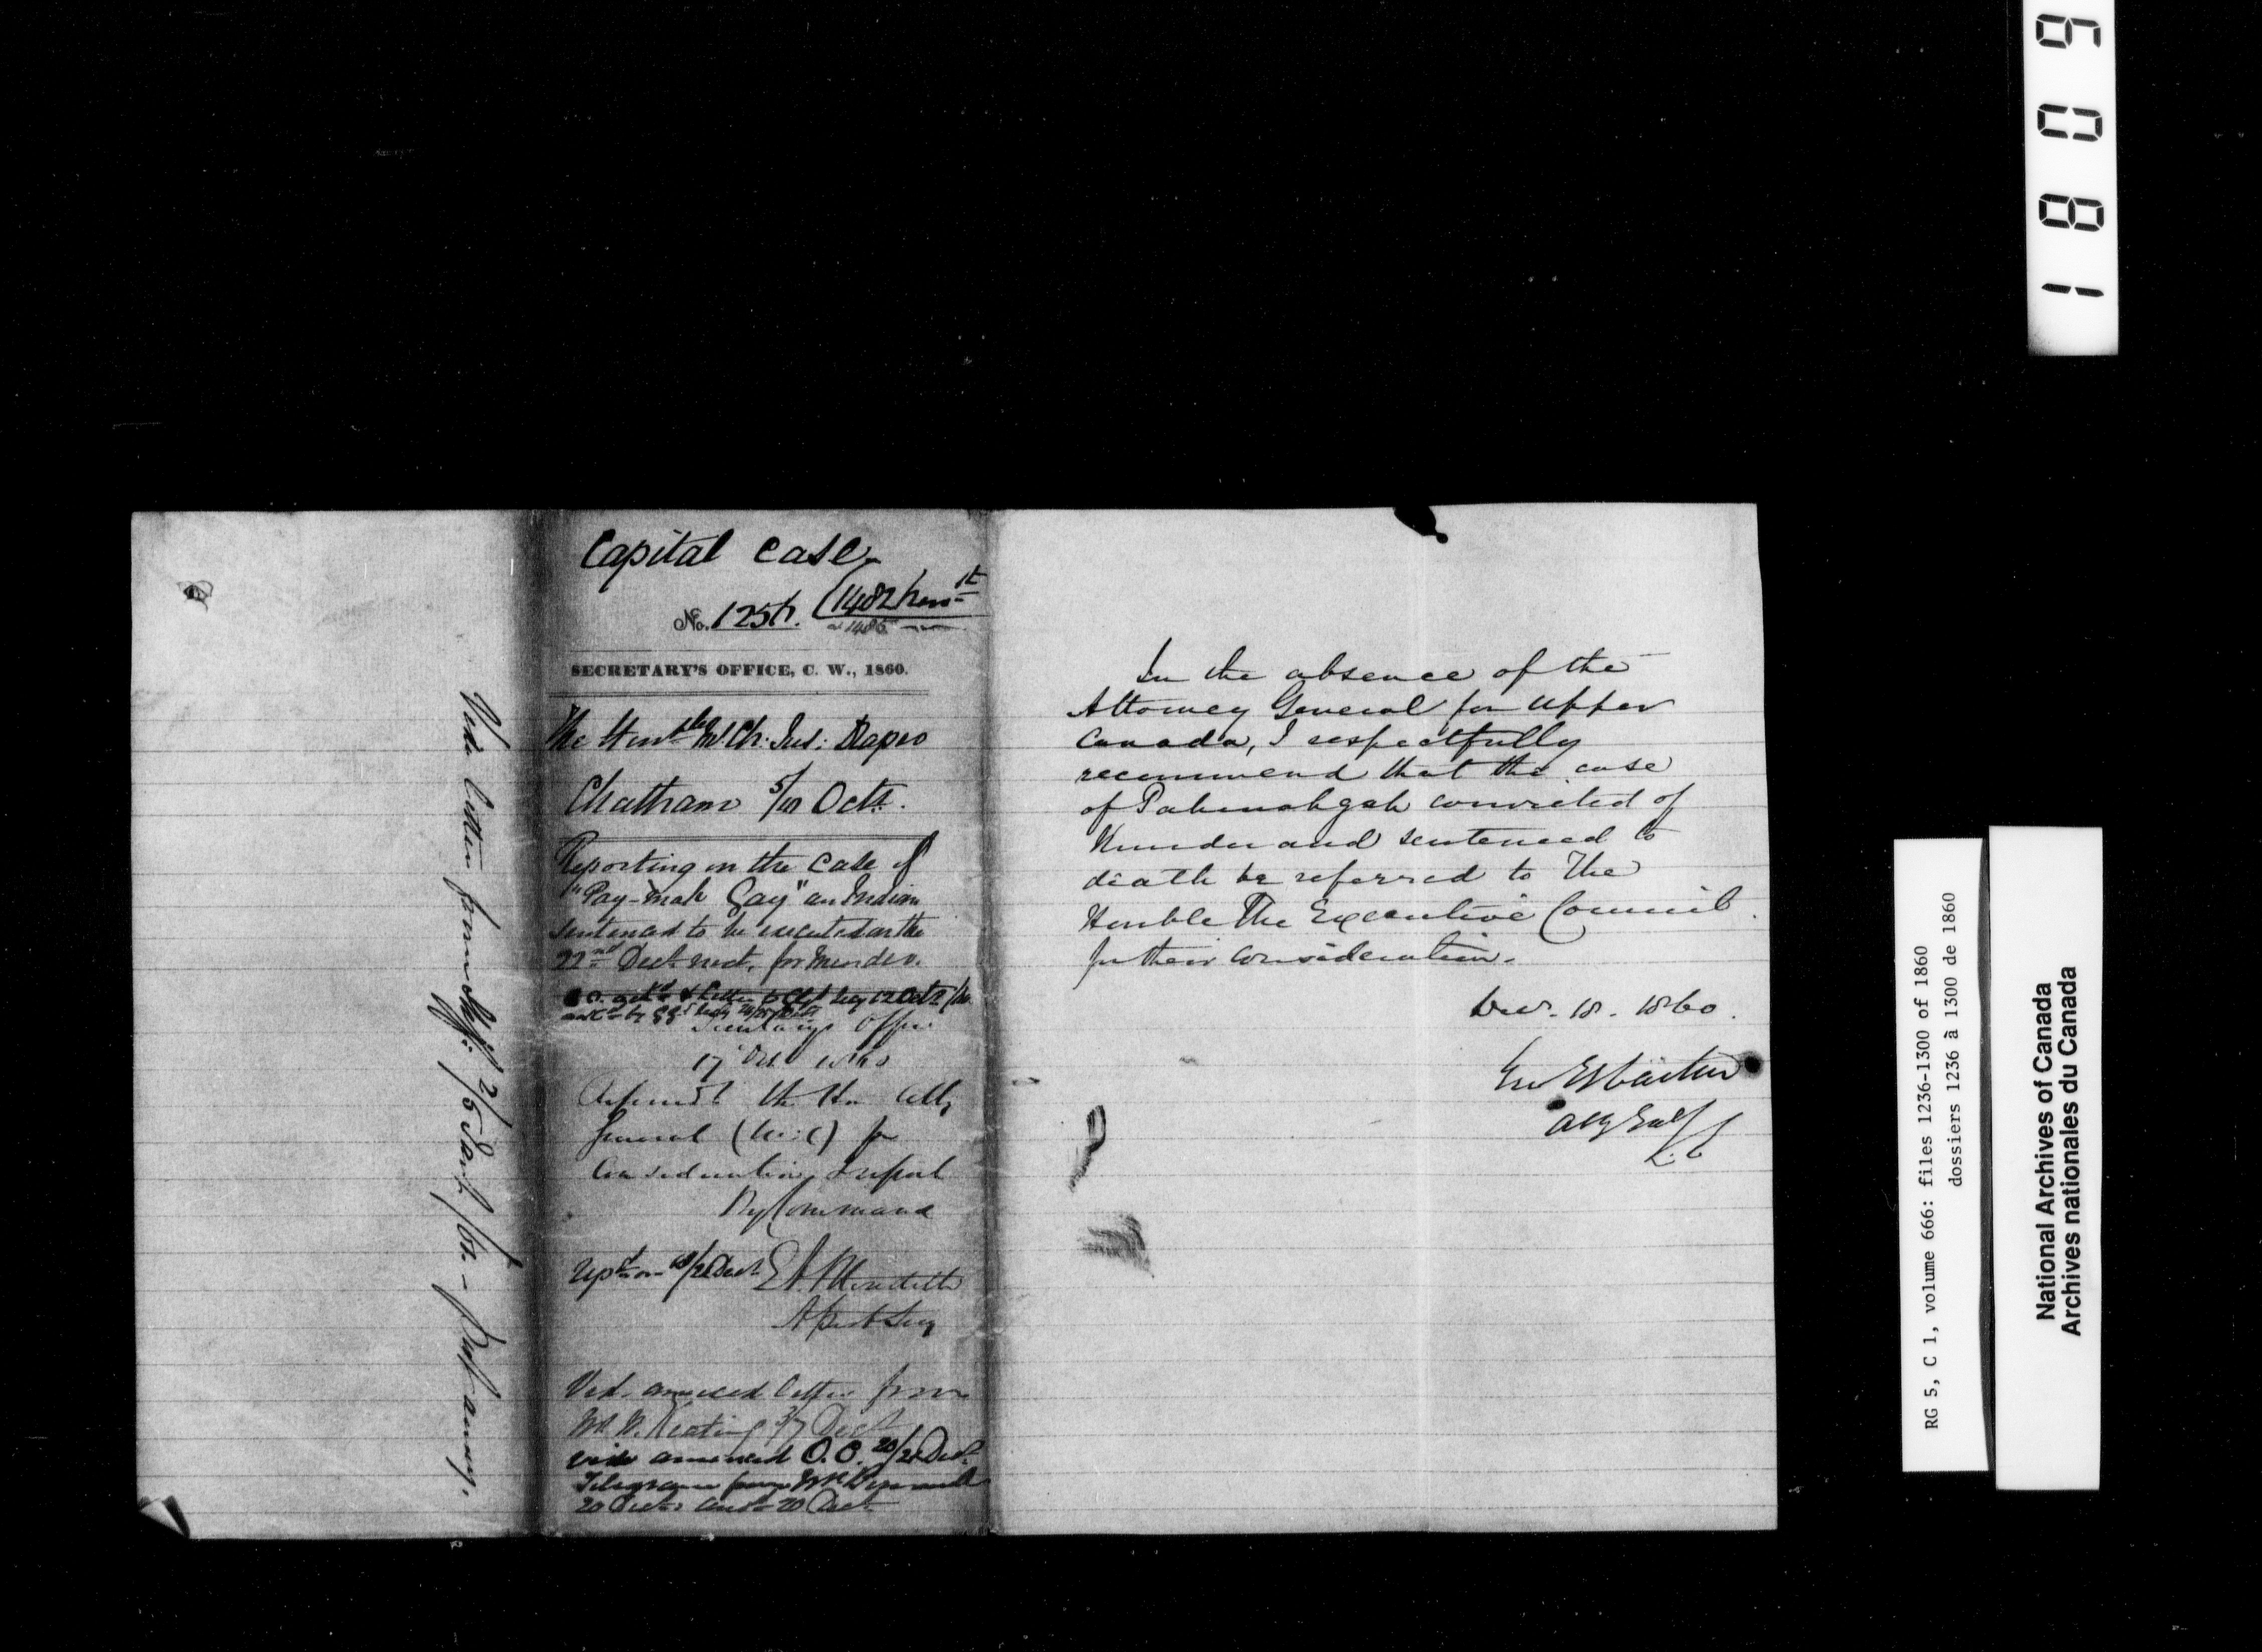 Vide letter from Sheff: 2/5 Jany/61 -
Capital Case
No. 1257.
SECRETARY'S OFFICE, C. W., 1860.
The Honble Mr Ch: Jus: Draper
Chatham 5/10 Octr.
Reporting on the case of
"Pay-mah Gay" an Indian
sentenced to be executed on the
22nd Decr next, for Murder.
Secretarys Office
17 Oct 1860
Referred to the Hon Atty
General (U:C) for
Consideration & report
By Command
E A Meredith
Asst Secy
Vide annexed letter from
Mr W. Keating 3/7 Dect
vide annexed O.C. 20/21 Dect.
Telegram from Mr
20 Dect and 20 Dect
In the absence of the
Attorney General for Upper
Canada, I respectfully
recommend that the case
of Pahmahgah convicted of
Murder and sentenced to
death be referred to The
Honble The Executive Council
for their consideration.
Dec. 18. 1860.
Geo E Cartier
Atty Genl
L. C
1 8 0 9
RG 5, C 1, volume 666: files 1236-1300 of 1860
dossiers 1236 à 1300 de 1860
National Archives of Canada
Archives nationales du Canada